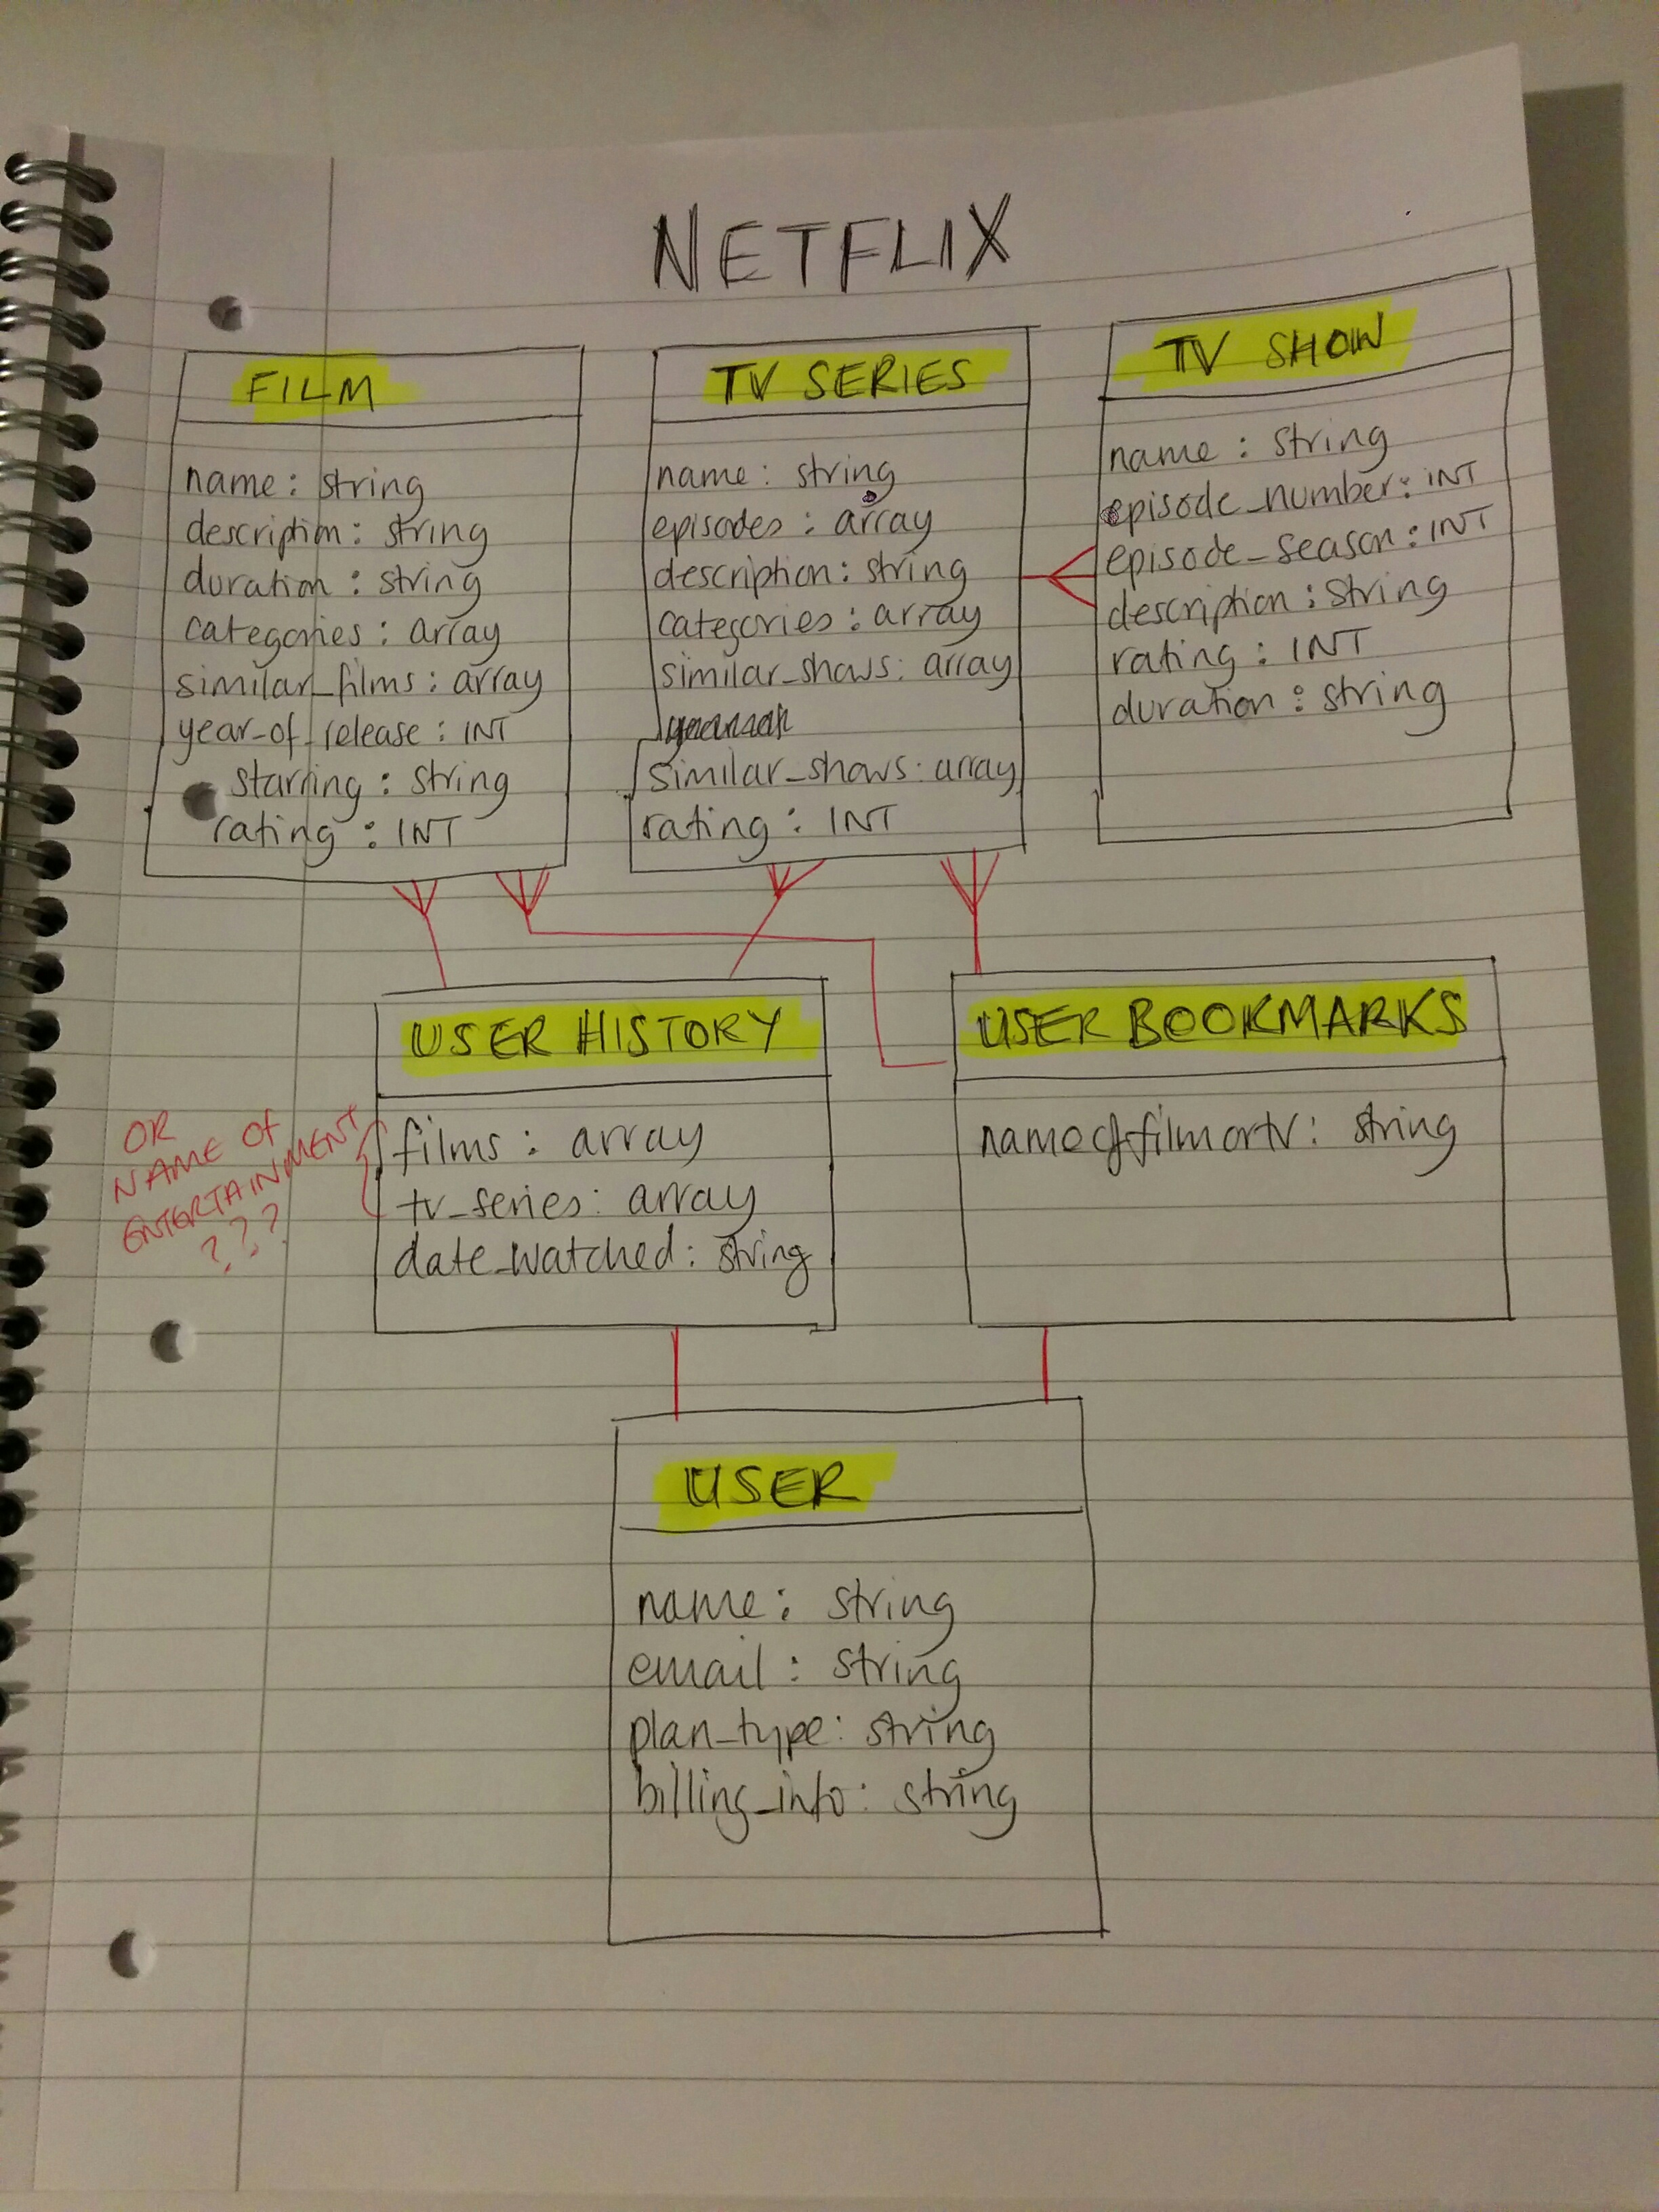 NETFLIX
FILM
name : string
description : string
duration : string
categories : array
similar_films : array
year_of_release : INT
starring : string
rating : INT
TV SERIES
name : string
episodes : array
description : string
categories : array
similar_shows : array
similar_shows : array
rating : INT
TV SHOW
name : string
episode_number : INT
episode_season : INT
description : string
rating : INT
duration : string
USER HISTORY
films : array
tv_series : array
date_watched : string
OR
NAME OF
ENTERTAINMENT
???
USER BOOKMARKS
nameoffilmortv : string
USER
name : string
email : string
plan_type : string
billing_info : string